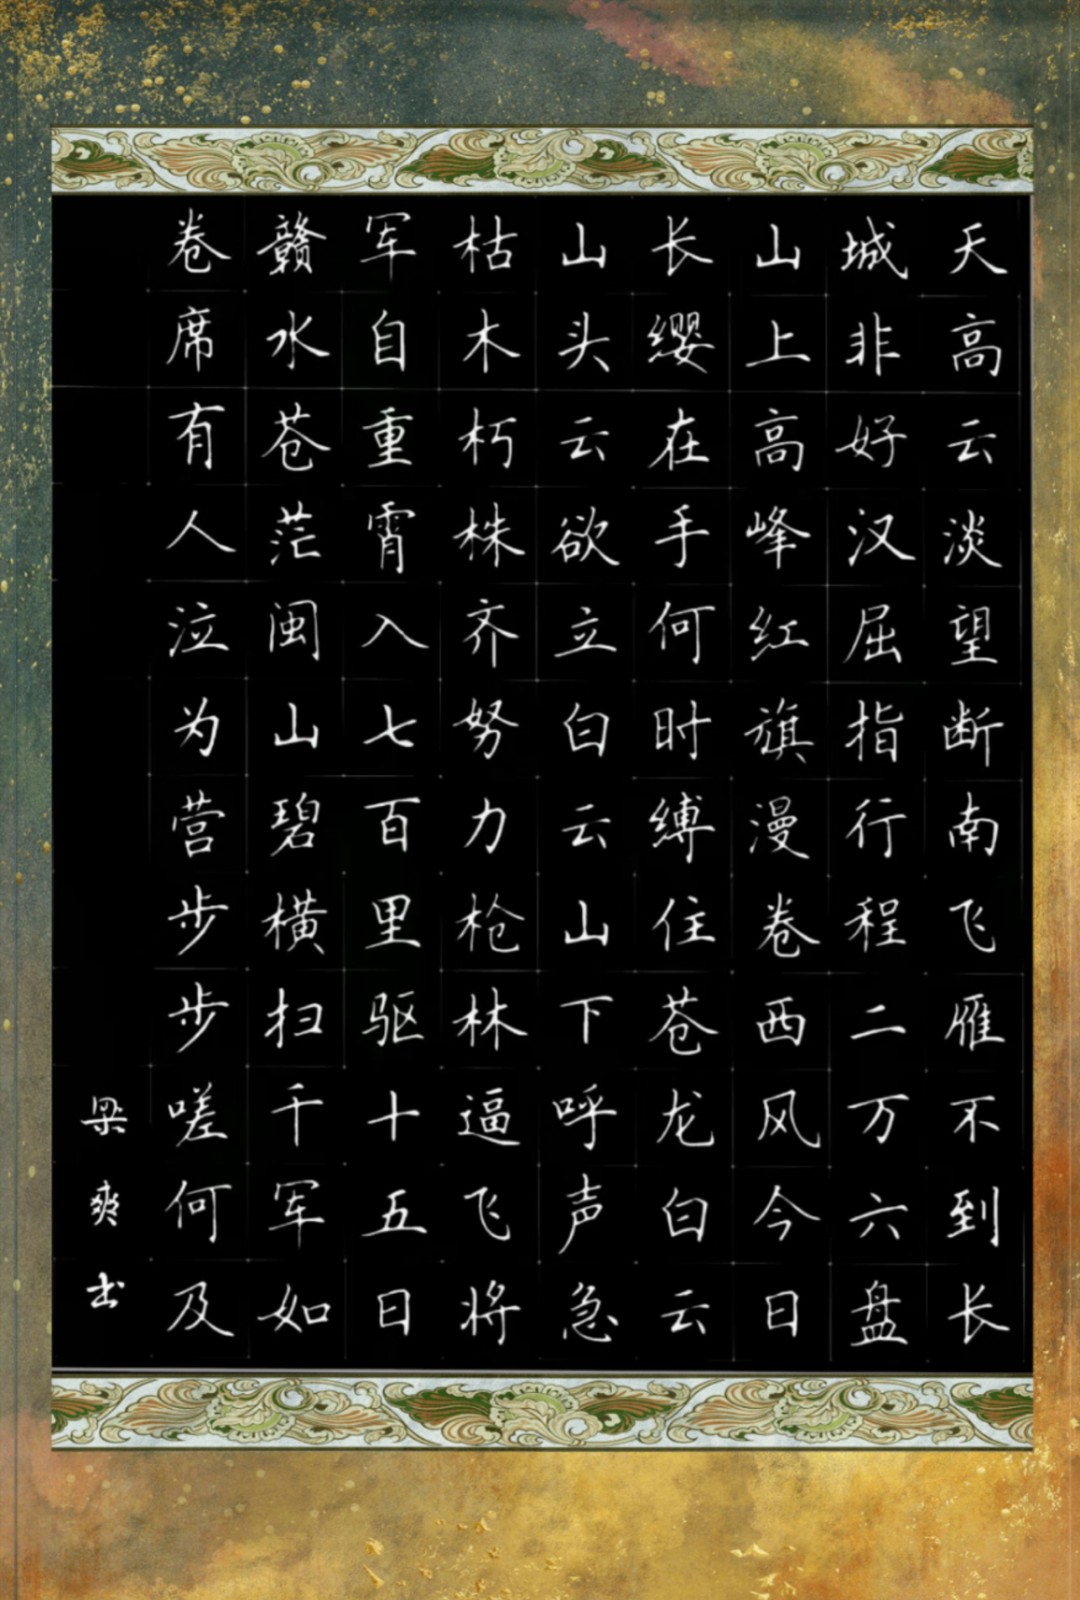 天高云淡望断南飞雁不到长
城非好汉屈指行程二万六盘
山上高峰红旗漫卷西风今日
长缨在手何时缚住苍龙白云
山头云欲立白云山下呼声急
枯木朽株齐努力枪林逼飞将
军自重霄入七百里驱十五日
赣水苍茫闽山碧横扫千军如
卷席有人泣为营步步嗟何及
梁爽书